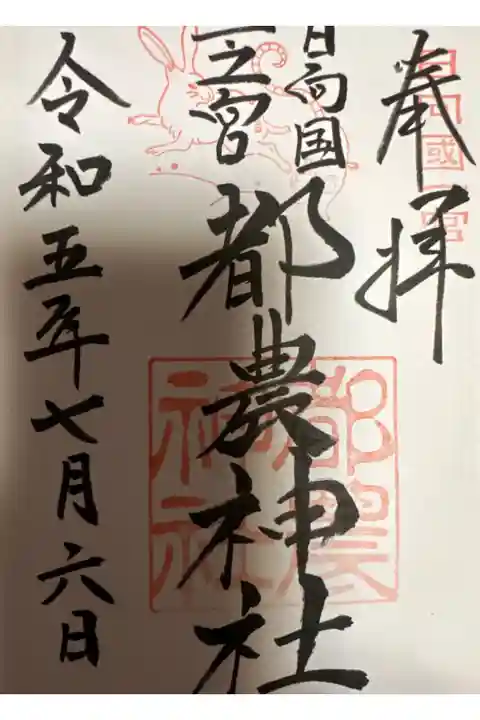 奉拝
日向国
一之宮
都農神社
令和五年七月六日
日向國一宮
都農
神社